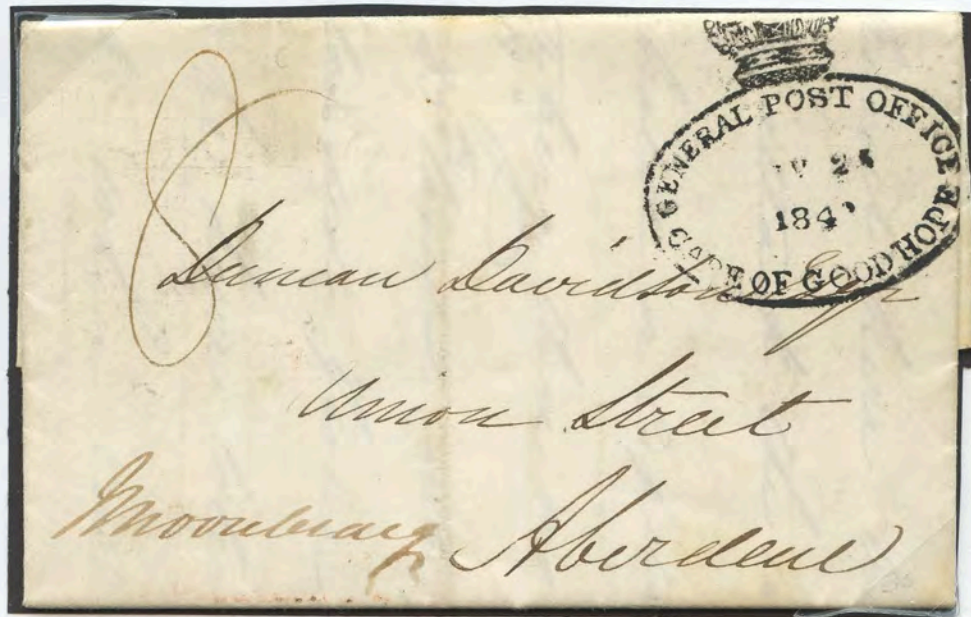 8
GENERAL POST OFFICE
24
184
CAPE OF GOOD HOPE
Duncan Davidson Esqr
Union Street
Aberdeen